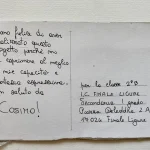 sono felice di aver
realizzato questo
progetto perché mi
esprimere al meglio
mie capacità e
espressione.
un saluto da
COSIMO!
per la classe 2ªB
I.C. FINALE LIGURE
Secondaria I grado
2
17024 Finale Ligure